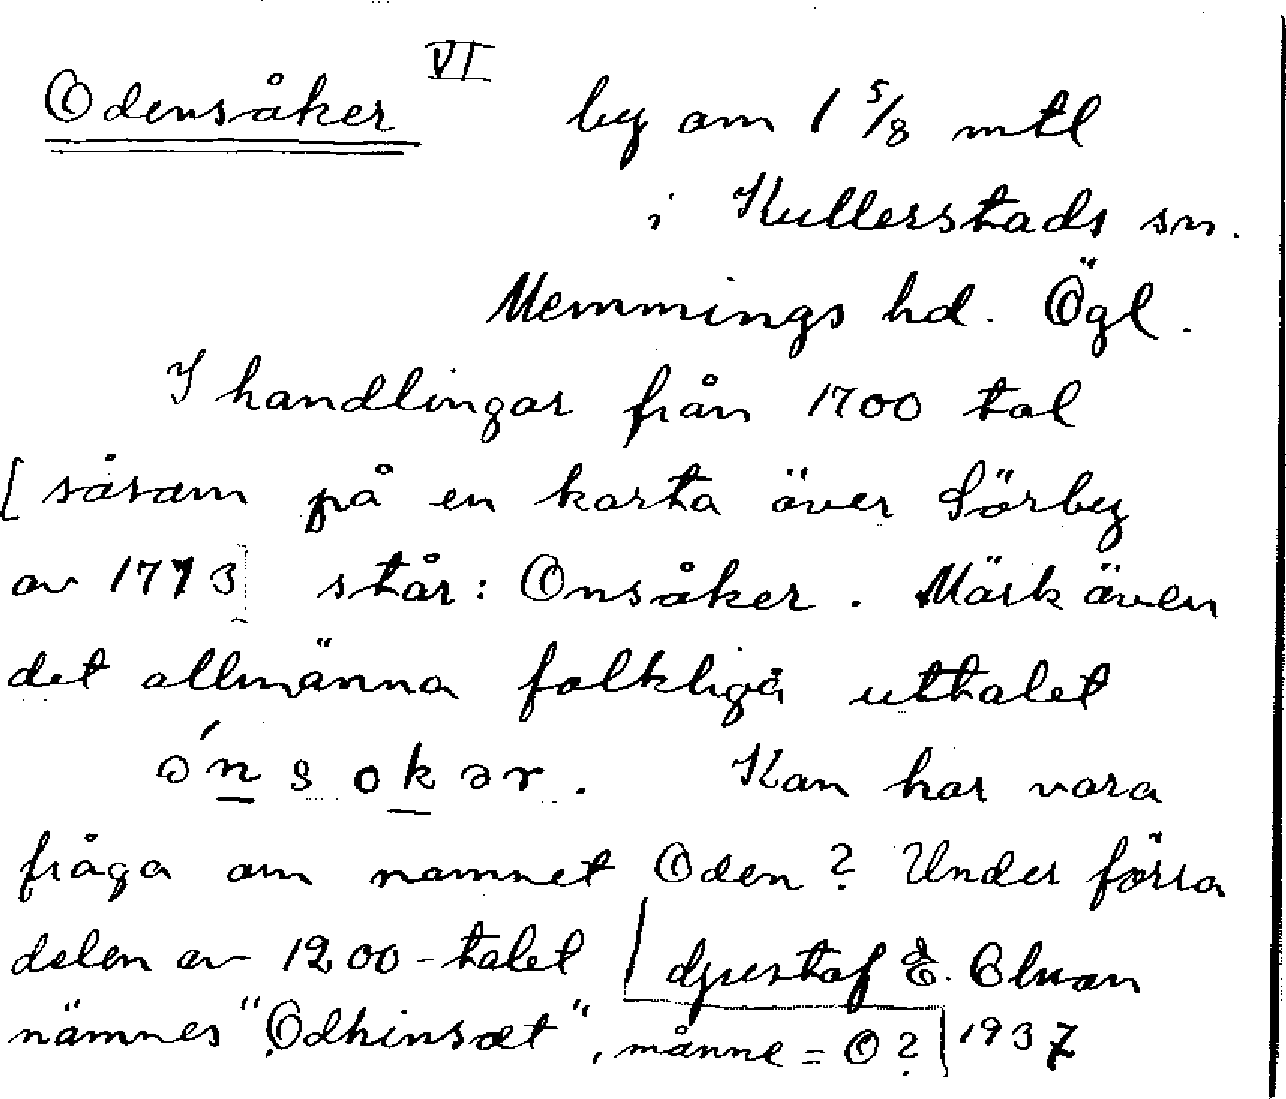 Odensåker VI by om 1 5/8 mtl
i Kullerstads sn.
Memmings hd. Ögl.
I handlingar från 1700 tal
[såsom på en karta över Sörby
av 1773] står: Onsåker. Märk även
det allmänna folkliga uttalet
ónsokər. Kan har vara
fråga om namnet Oden? Under förra
delen av 1200-talet
nämnes "Odhinsæt", månne = O?
Gustaf E.
1937